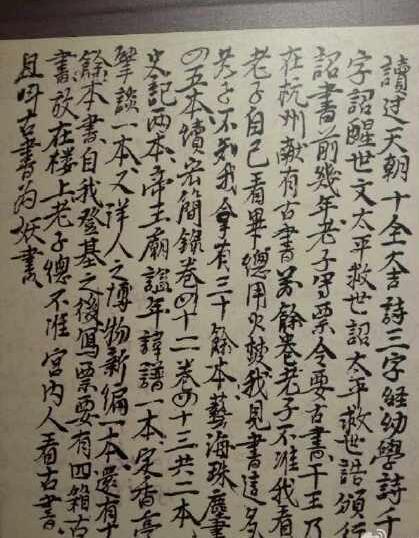 讀过天朝十全大吉詩三字經幼學詩千
字詔醒世文太平救世詔太平救世誥頒行
詔書前幾年老子写票令要古書干王乃
在杭州献有古書萬餘卷老子不准我看
老子自己看畢總用火焚我見書這多
老子不知我拿有三十餘本藝海珠塵書
四五本續宏簡錄卷四十二卷四十三共二本
史記兩本帝王廟謚年諱譜一本定香亭
筆談一本又洋人之博物新編一本還有十
餘本書自我登基之後寫票要有四箱古
書放在楼上老子總不准宮内人看古書
且叫古書为妖書